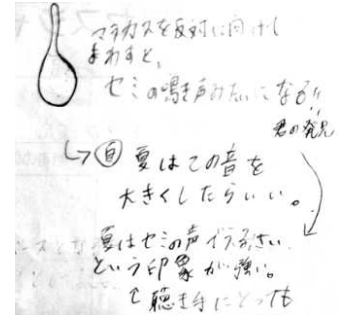 マラカスを反対に向けて
まわすと、
セミの鳴き声みたいになる!!
君の発見
↳ 夏はこの音を
大きくしたらいい。
夏はセミの声がうるさい
という印象が強い。
聴き手にとっても